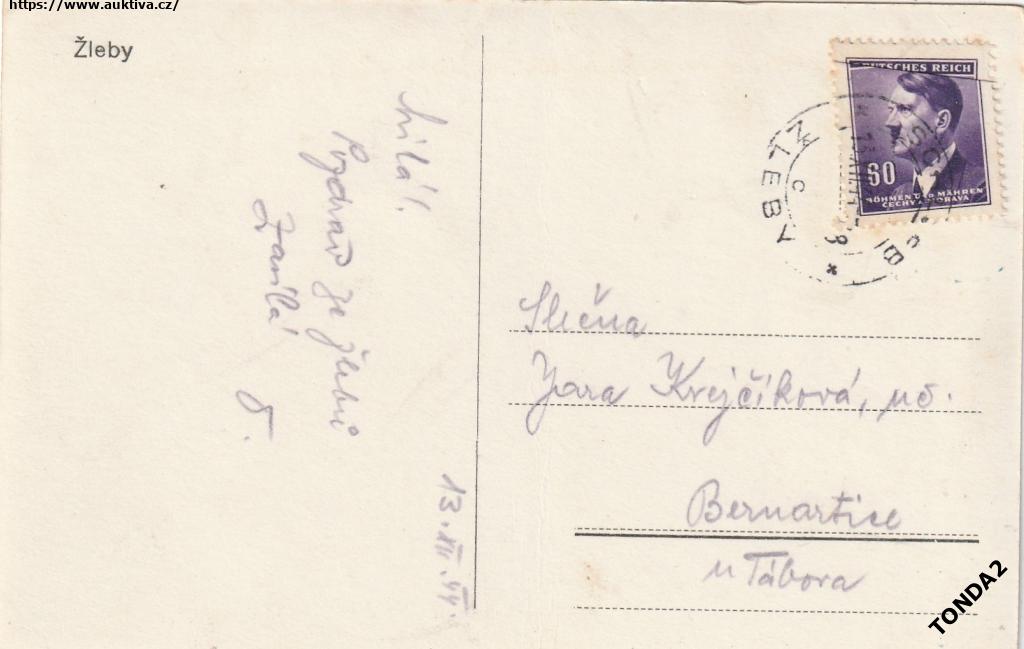 https://www.auktiva.cz/
Žleby
Milá!
Pozdrav ze Žlebů
zasílá
J.
13.XII.44.
DEUTSCHES REICH
60
BÖHMEN UND MÄHREN
ČECHY A MORAVA
ŽLEBY
c
Slečna
Jara Krejčíková, uč.
Bernartice
u Tábora
TONDA2